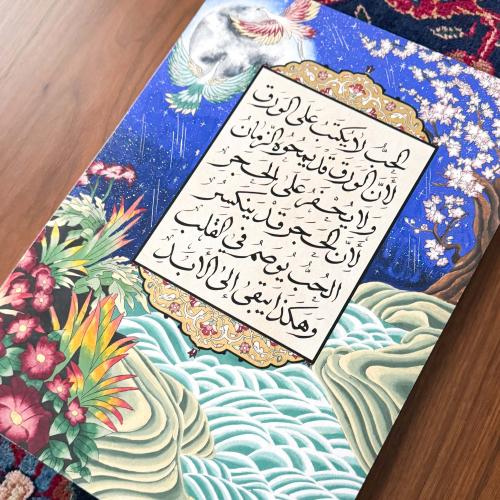 الحب لا يكتب على الورق
لأن الورق قد يمحوه الزمان
ولا يحفر على الحجر
لأن الحجر قد ينكسر
الحب يوصم في القلب
وهكذا يبقى إلى الأبد